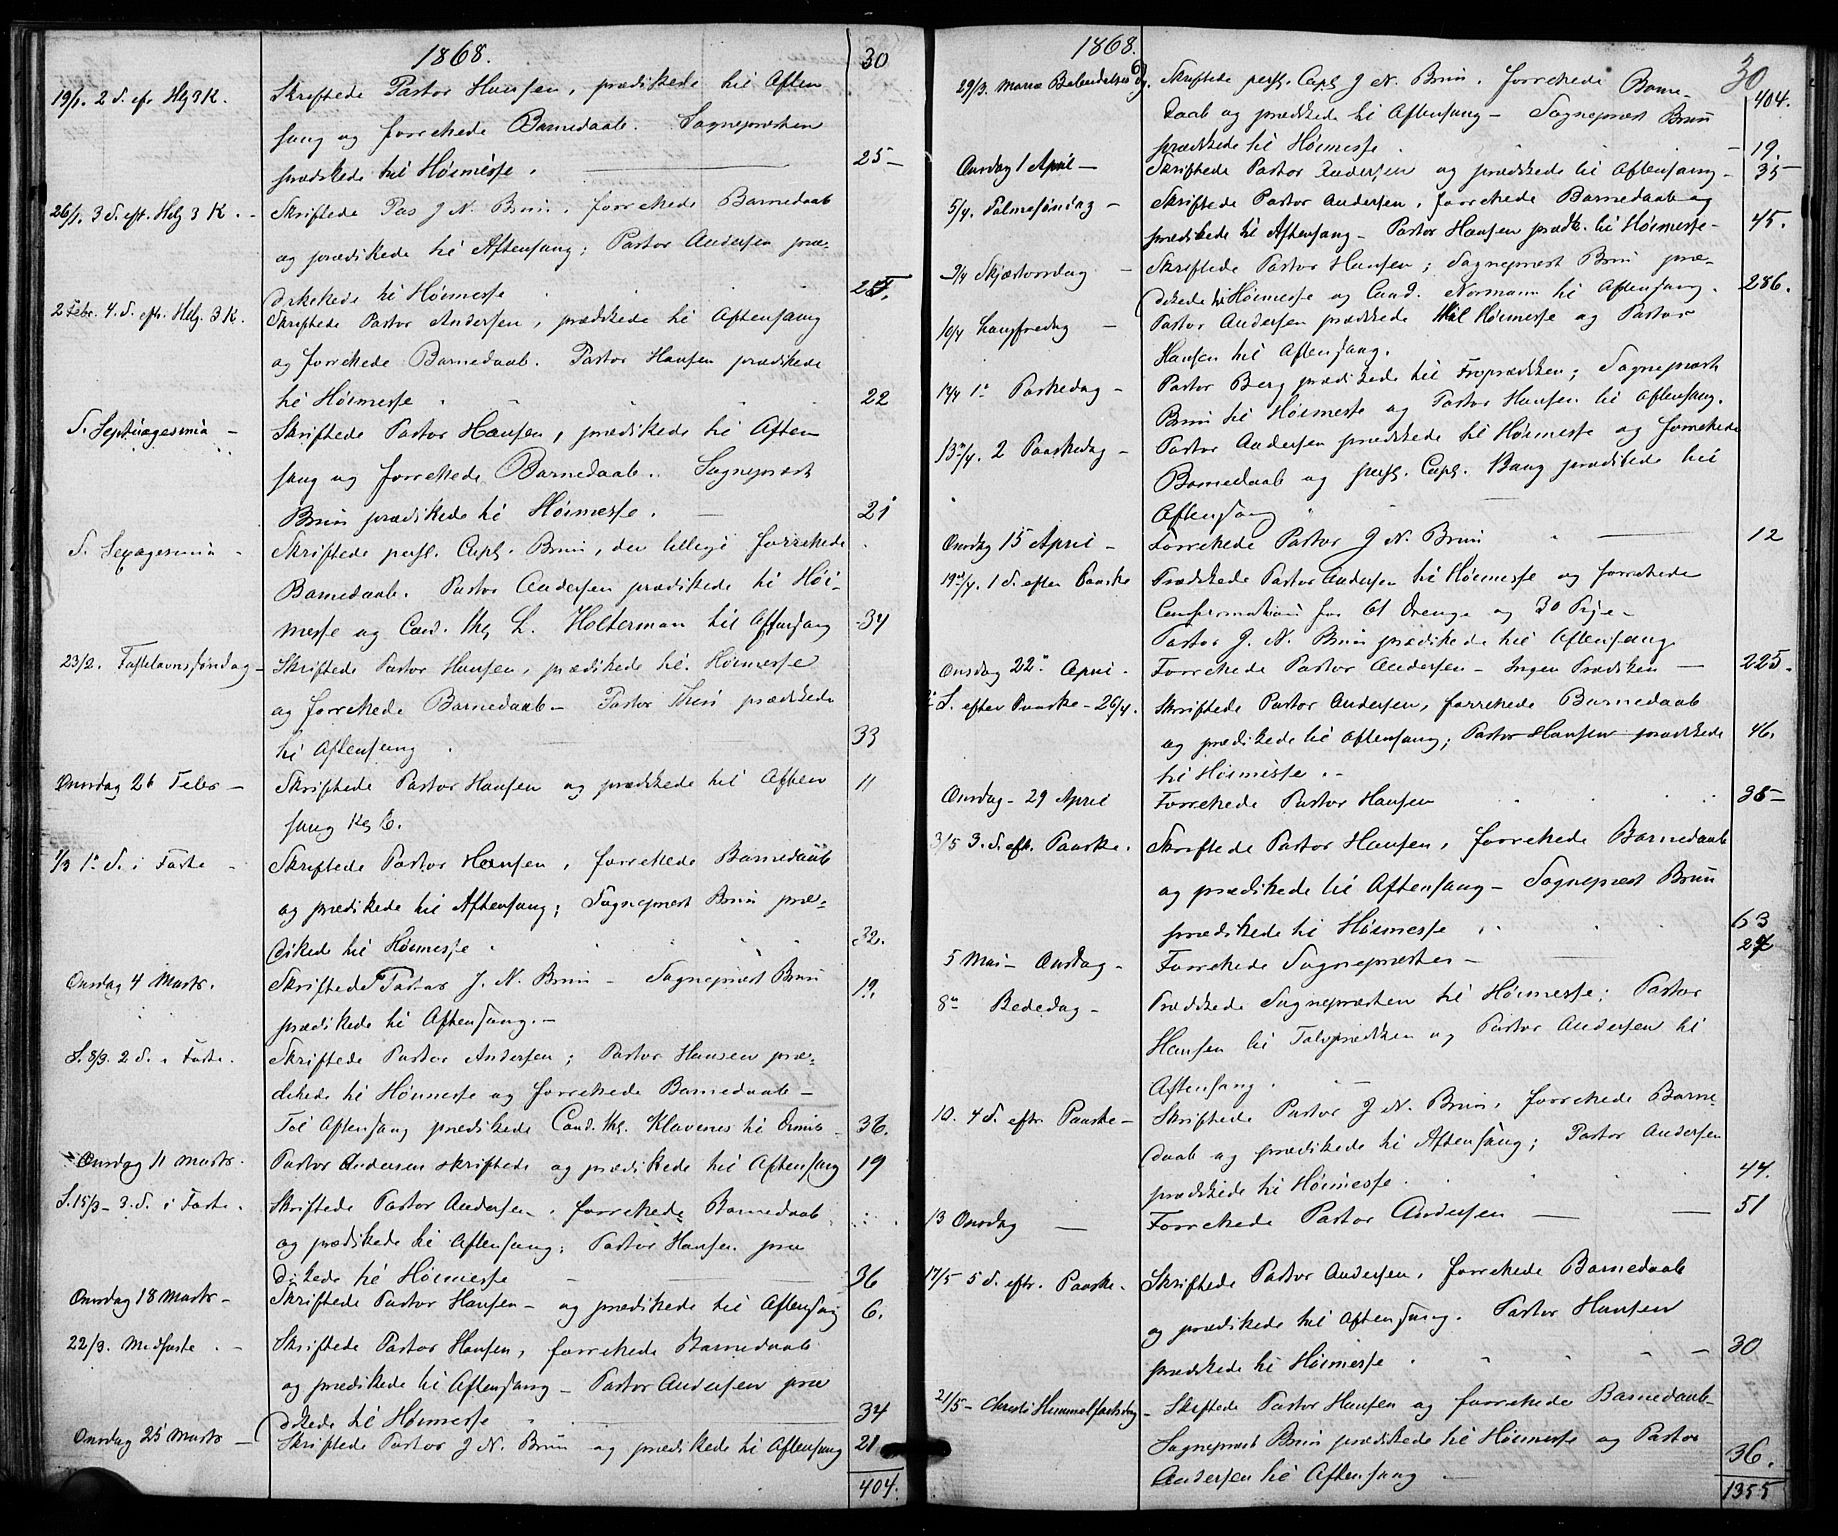 1868.
30
19/1. 2 S. efr Hlg 3 K. Skriftede Pastor Hansen, prædikede til Aften
sang og forrettede Barnedaab. Sognepræsten
prædikede til Høimesse. 25 –
26/1. 3 S. eft. Helg 3 K. – Skriftede Pas J. N. Brun, forrettede Barnedaab
og prædikede til Aftensang; Pastor Andersen præ-
dikede til Høimesse
2 Febr. 4. S. eftr. Helg. 3 K. Skriftede Pastor Andersen, prædikede til Aftensang
og forrettede Barnedaab. Pastor Hansen prædikede
til Høimesse 22
S. Septuagesima – Skriftede Pastor Hansen, prædikede til Aften
sang og forrettede Barnedaab. Sognepræst
Brun prædikede til Høimesse. – 21
S. Sexagesima – Skriftede pers. Capl. Brun, der tillige forrettede
Barnedaab. Pastor Andersen prædikede til Høi-
messe og Cand. thg L. Holterman til Aftensang 34
23/2. Fastelavnssøndag – Skriftede Pastor Hansen, prædikede til Høimesse
og forrettede Barnedaab – Pastor prædikede
til Aftensang . 33
Onsdag 26 Febr – Skriftede Pastor Hansen og prædikede til Aften 11
sang Kl 6.
1/3 1ste S. i Faste – Skriftede Pastor Hansen, forrettede Barnedaab
og prædikede til Aftensang; Sognepræst Brun præ-
dikede til Høimesse 32.
Onsdag 4 Marts. Skriftede Pastor J. N. Brun – Sognepræst Brun 19.
prædikede til Aftensang. –
S. 8/3. 2 S. i Faste. Skriftede Pastor Andersen; Pastor Hansen præ-
dikede til Høimesse og forrettede Barnedaab –
Til Aftensang prædikede Cand. thg. Klavenes til Dimis – 36.
Onsdag 11 Marts. Pastor Andersen skriftede og prædikede til Aftensang 19
S. 15/3 – 3. S. i Faste. Skriftede Pastor Andersen, forrettede Barnedaab,
og prædikede til Aftensang; Pastor Hansen præ
dikede til Høimesse 36
Onsdag 18 Marts – Skriftede Pastor Hansen – og prædikede til Aftensang 6.
22/3. Midfaste . – Skriftede Pastor Hansen, forrettede Barnedaab
og prædikede til Aftensang – Pastor Andersen præ
dikede til Høimesse 34
Onsdag 25 Marts – Skriftede Pastor J. N. Brun og prædikede til Aftensang 21
404.
1868.
30
404.
29/3. Mariæ Bebudelses Dg. Skriftede pers. Capl J N. Brun. forrettede Barne-
daab og prædikede til Aftensang – Sognepræst Brun
prædikede til Høimesse . – 19.
Onsdag 1 April – Skriftede Pastor Andersen og prædikede til Aftensang – 35
5/4. Palmesøndag – Skriftede Pastor Andersen, forrettede Barnedaab og
prædikede til Aftensang – Pastor Hansen prædk. til Høimesse – 45.
9/4 Skjærtorsdag – Skriftede Pastor Hansen; Sognepræst Brun præ-
dikede til Høimesse og Cand. Normann til Aftensang. 286.
10/4 Langfredag – Pastor Andersen prædikede til Høimesse og Pastor
Hansen til Aftensang.
12/4 1ste Paaskedag – Pastor Berg prædikede til Froprædiken; Sognepræst
Brun til Høimesse og Pastor Hansen til Aftensang.
13/4. 2 Paaskedag – Pastor Andersen prædikede til Høimesse og forrettede
Barnedaab og pers. Capl. Bang prædikede til
Aftensang
Onsdag 15 April – Forrettede Pastor J N. Brun – 12
19/4. 1 S. efter Paaske Prædikede Pastor Andersen til Høimesse og forrettede
Confirmation for 61 Drenge og 30 Pige –
Pastor J. N. Brun prædikede til Aftensang
Onsdag 22de April. Forrettede Pastor Andersen – Ingen Prædiken – 225.
2 S. efter Paaske – 26/4. Skriftede Pastor Andersen, forrettede Barnedaab
og prædikede til Aftensang; Pastor Hansen prædikede 46.
til Høimesse. –
Onsdag – 29 April Forrettede Pastor Hansen 35 –
3/5 3. S. eft. Paaske. Skriftede Pastor Hansen, forrettede Barnedaab
og prædikede til Aftensang – Sognepræst Brun
prædikede til Høimesse 63
5 Mai – Onsdag – Forrettede Sognepræsten –
8de Bededag – Prædikede Sognepræsten til Høimesse; Pastor
Hansen til Tolvprædiken og Pastor Andersen til
Aftensang. –
10. 4 S. eftr Paaske – Skriftede Pastor J N. Brun, forrettede Barne-
daab og prædikede til Aftensang; Pastor Andersen
prædikede til Høimesse . 44.
13 Onsdag – Forrettede Pastor Andersen – – 51
17/5 5 S. eftr. Paaske. Skriftede Pastor Andersen, forrettede Barnedaab
og prædikede til Aftensang. Pastor Hansen
prædikede til Høimesse . – – 30
21/5 – Christi Himmelfartsdag – Skriftede Pastor Hansen og forrettede Barnedaab –
Sognepræst Brun prædikede til Høimesse og Pastor
Andersen til Aftensang – 36.
1355